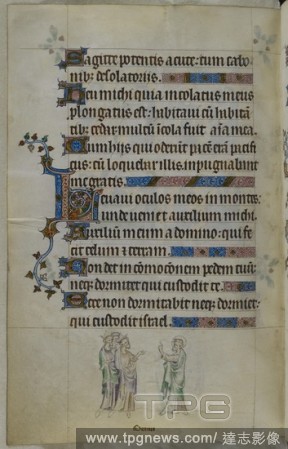 Sagitte potentis acute: cum carbo
nib: desolatorijs.
Heu michi quia incolatus meus
plongatus est: habitaui cū habitā
tib: cedar: multū īcola fuit aīa mea.
Cum hijs qui oderūt pacē erā paci
ficus: cū loquebar illis inpugnabant
me gratis.
Leuaui oculos meos in montes:
unde ueniet auxilium michi.
Auxilium meum a domino: qui fe
cit celum & terram.
Non det in cōmocōnem pedem tuū:
neq; dormitet qui custodit te.
Ecce non dormitabit neq; dormiet:
qui custodit israel.
TPG
www.tpgnews.com/ 達志影像